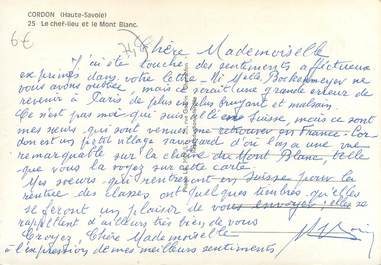 CORDON (Haute-Savoie)
25 Le chef-lieu et le Mont Blanc.
6€
74
Chère Mademoiselle
J'ai été touchée des sentiments affectueux
exprimés dans votre lettre - Ni Melle, ni moi ne
vous avons oubliée, mais ce serait une grande erreur de
revenir à Paris de plus en plus bruyant et malsain.
Ce n'est pas moi qui suis allée en Suisse, mais ce sont
mes sœurs qui sont venues me retrouver en France. Cor-
don est un petit village savoyard d'où l'on a une vue
remarquable sur la chaîne du Mont Blanc, telle
que vous la voyez sur cette carte.
Mes sœurs qui rentrent en Suisse pour la
rentrée des classes ont quelques timbres qu'elles
se feront un plaisir de vous envoyer : elles se
rappellent d'ailleurs très bien de vous
Croyez Chère Mademoiselle
à l'expression de mes meilleurs sentiments